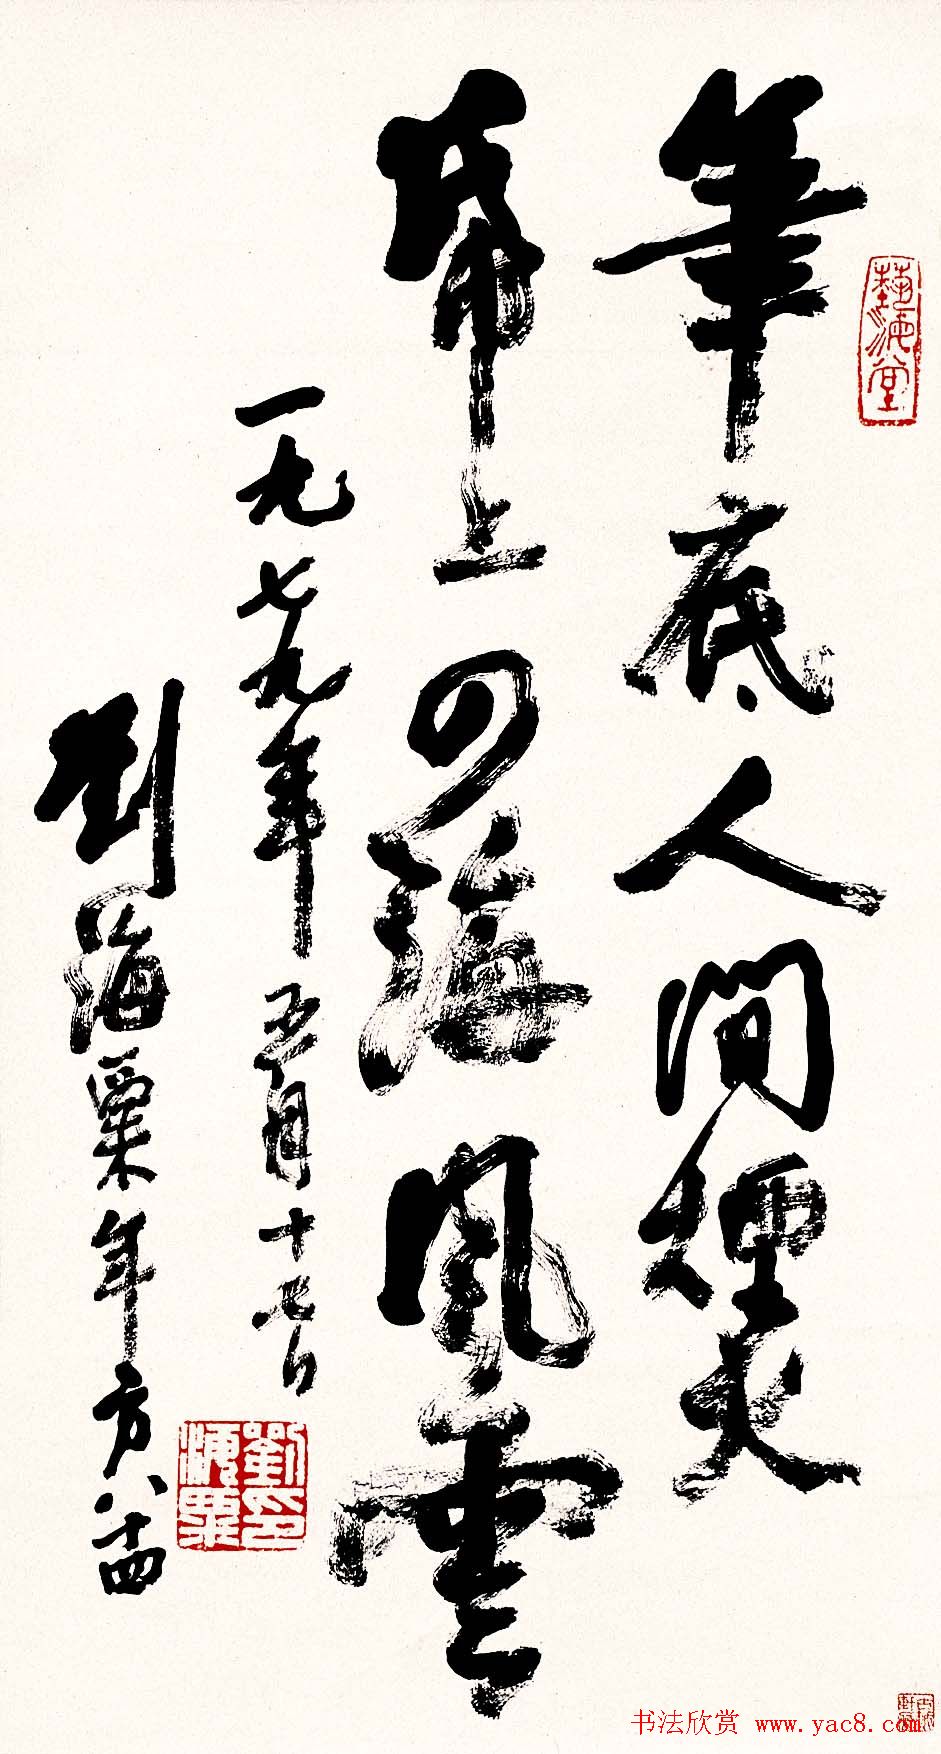 藝海堂
筆底人間煙火
幕上四海風雲
一九七九年五月十七日
劉海粟年方八十四
劉海粟印
书法欣赏 www.yac8.com